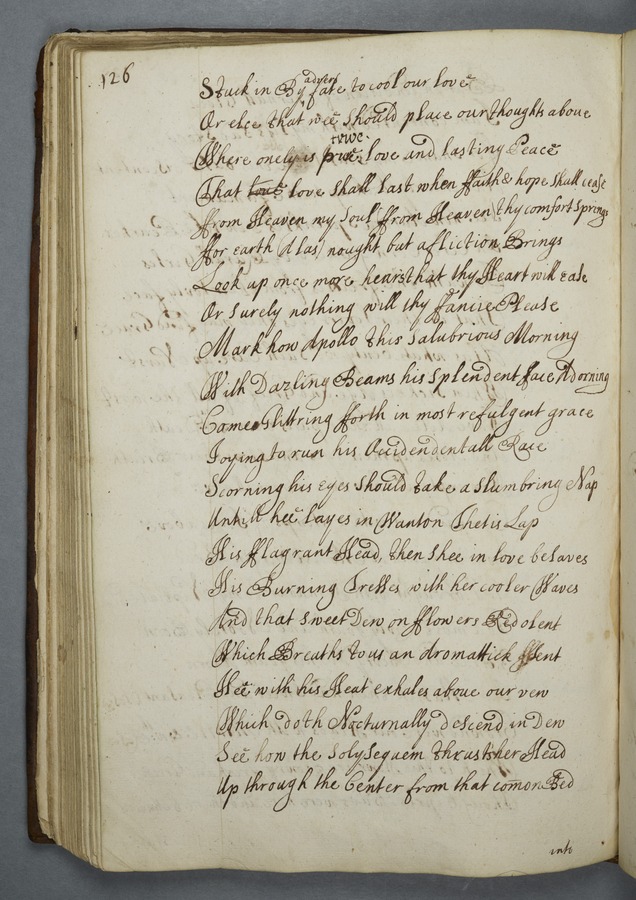 126
Stuck in By advers fate to cool our love
Or elce that wee should place our thoughts above
Where onely is true love and lasting Peace
That love shall last when ffaith & hope shall cease
ffrom Heaven my Soul ffrom Heaven thy comfort Springs
ffor earth (Alas) nought but afliction Brings
Look up once more hearsthat thy Heart will ease
Or Surely nothing will thy ffancie Please
Mark how Apollo this Salubrious Morning
With Dazling Beams his Splendent face Adorning
Comes Glittring fforth in most refulgent grace
Joying to run his Occidendentall Race
Scorning his eyes should take a slumbring Nap
Untill hee layes in Wanton Thetis Lap
His fflagrant Head, then shee in love belaves
His Burning Tresses with her cooler Waves
And that sweet Dew on fflowers Redolent
Which Breaths to us an Aromattick Sent
Hee with his Heat exhales above our vew
Which doth Nocturnally descend in Dew
See how the Solysequem thrusts her Head
Up through the Center from that comon Bed
into